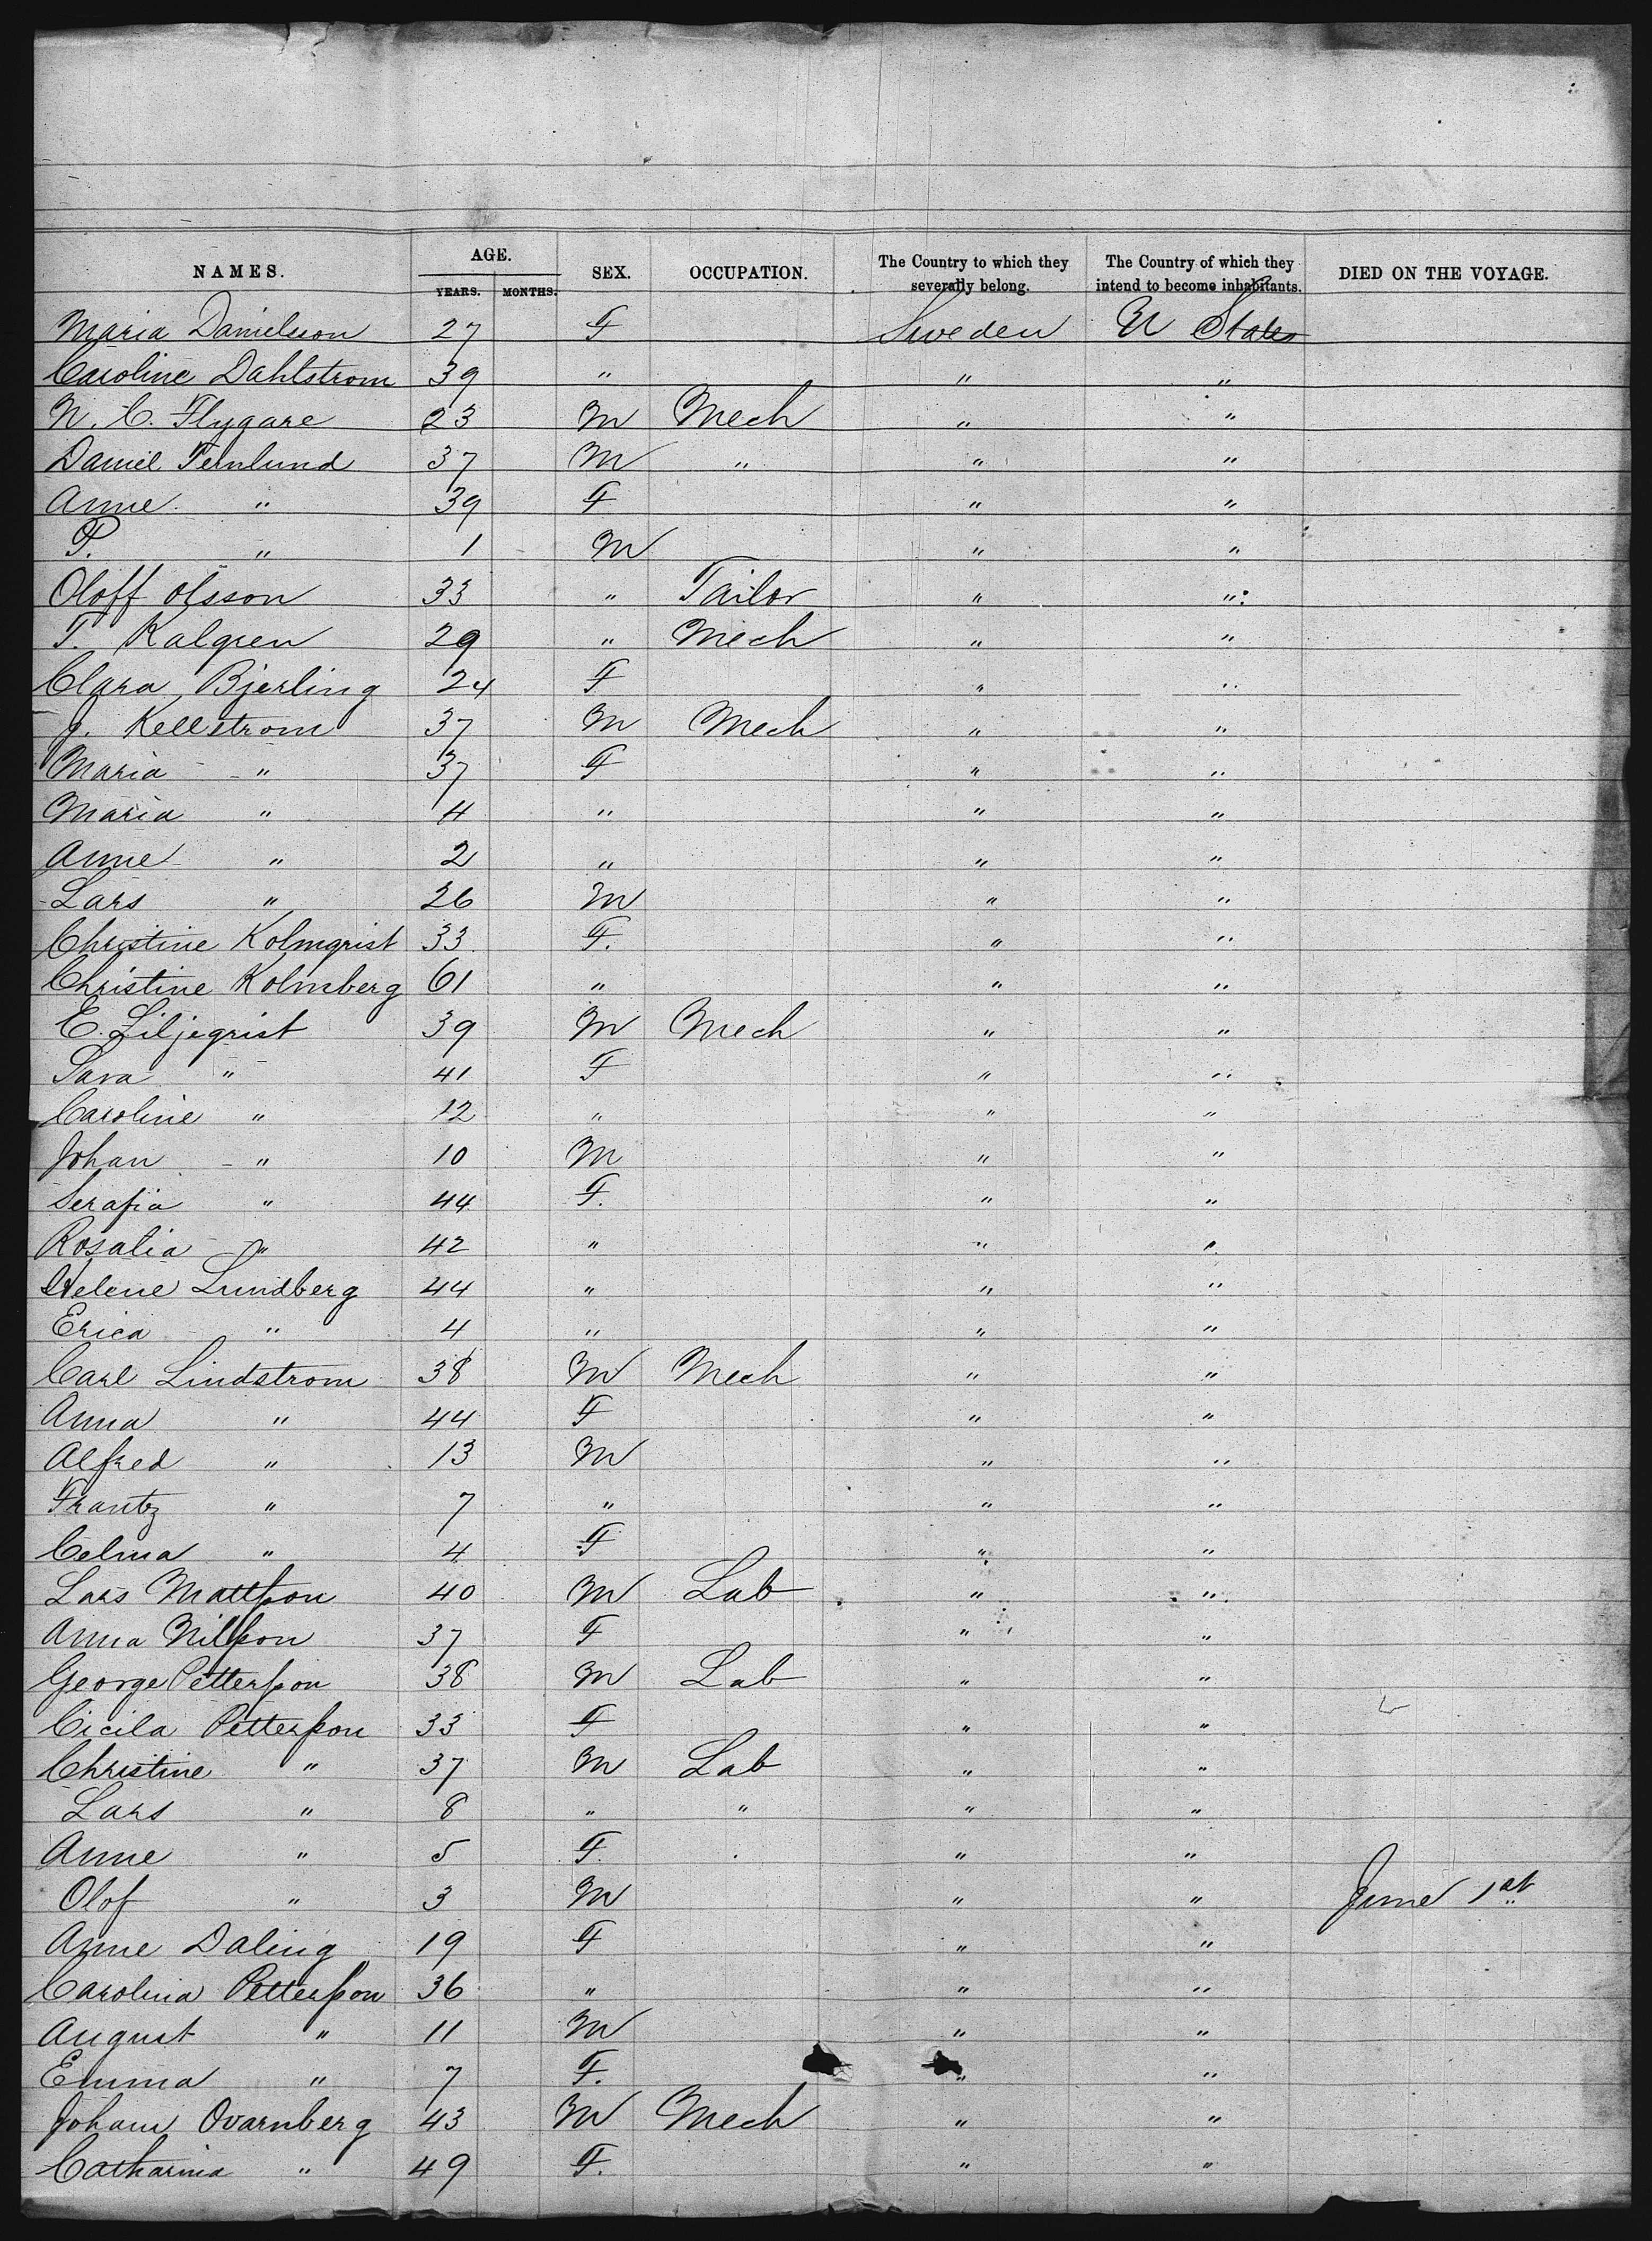 NAMES. AGE. SEX. OCCUPATION. The Country to which they severally belong. The Country of which they intend to become inhabitants. DIED ON THE VOYAGE.
YEARS. MONTHS.
Maria Danielsson 27 F Sweden U States
Caroline Dahlstrom 39 " " "
N. C. Flygare 23 M Mech " "
Daniel Ternlund 37 M " " "
Anne " 39 F " "
P. " 1 M " "
Oloff Olsson 33 " Tailor " "
T. Kalgren 29 " Mech " "
Clara Bjerling 24 F " "
J. Kellstrom 37 M Mech " "
Maria " 37 F " "
Maria " 4 " " "
Anne " 2 " " "
Lars " 26 M " "
Christine Kolmqrist 33 F. " "
Christine Kolmberg 61 " " "
E. Liljeqrist 39 M Mech " "
Sara " 41 F " "
Caroline " 12 " " "
Johan " 10 M " "
Serafia " 44 F. " "
Rosalia " 42 " " "
Helene Lundberg 44 " " "
Erica " 4 " " "
Carl Lindstrom 38 M Mech " "
Anna " 44 F " "
Alfred " 13 M " "
Frantz " 7 " " "
Celma " 4 F " "
Lars Mattsson 40 M Lab " "
Anna Nilsson 37 F " "
George Pettersson 38 M Lab " "
Cicila Pettersson 33 F " "
Christine " 37 M Lab " "
Lars " 8 " " " "
Anne " 5 F. " "
Olof " 3 M " " June 1st
Anne Daling 19 F " "
Carolina Pettersson 36 " " "
August " 11 M " "
Emma " 7 F. " "
Johann Ovarnberg 43 M Mech " "
Catharina " 49 F. " "